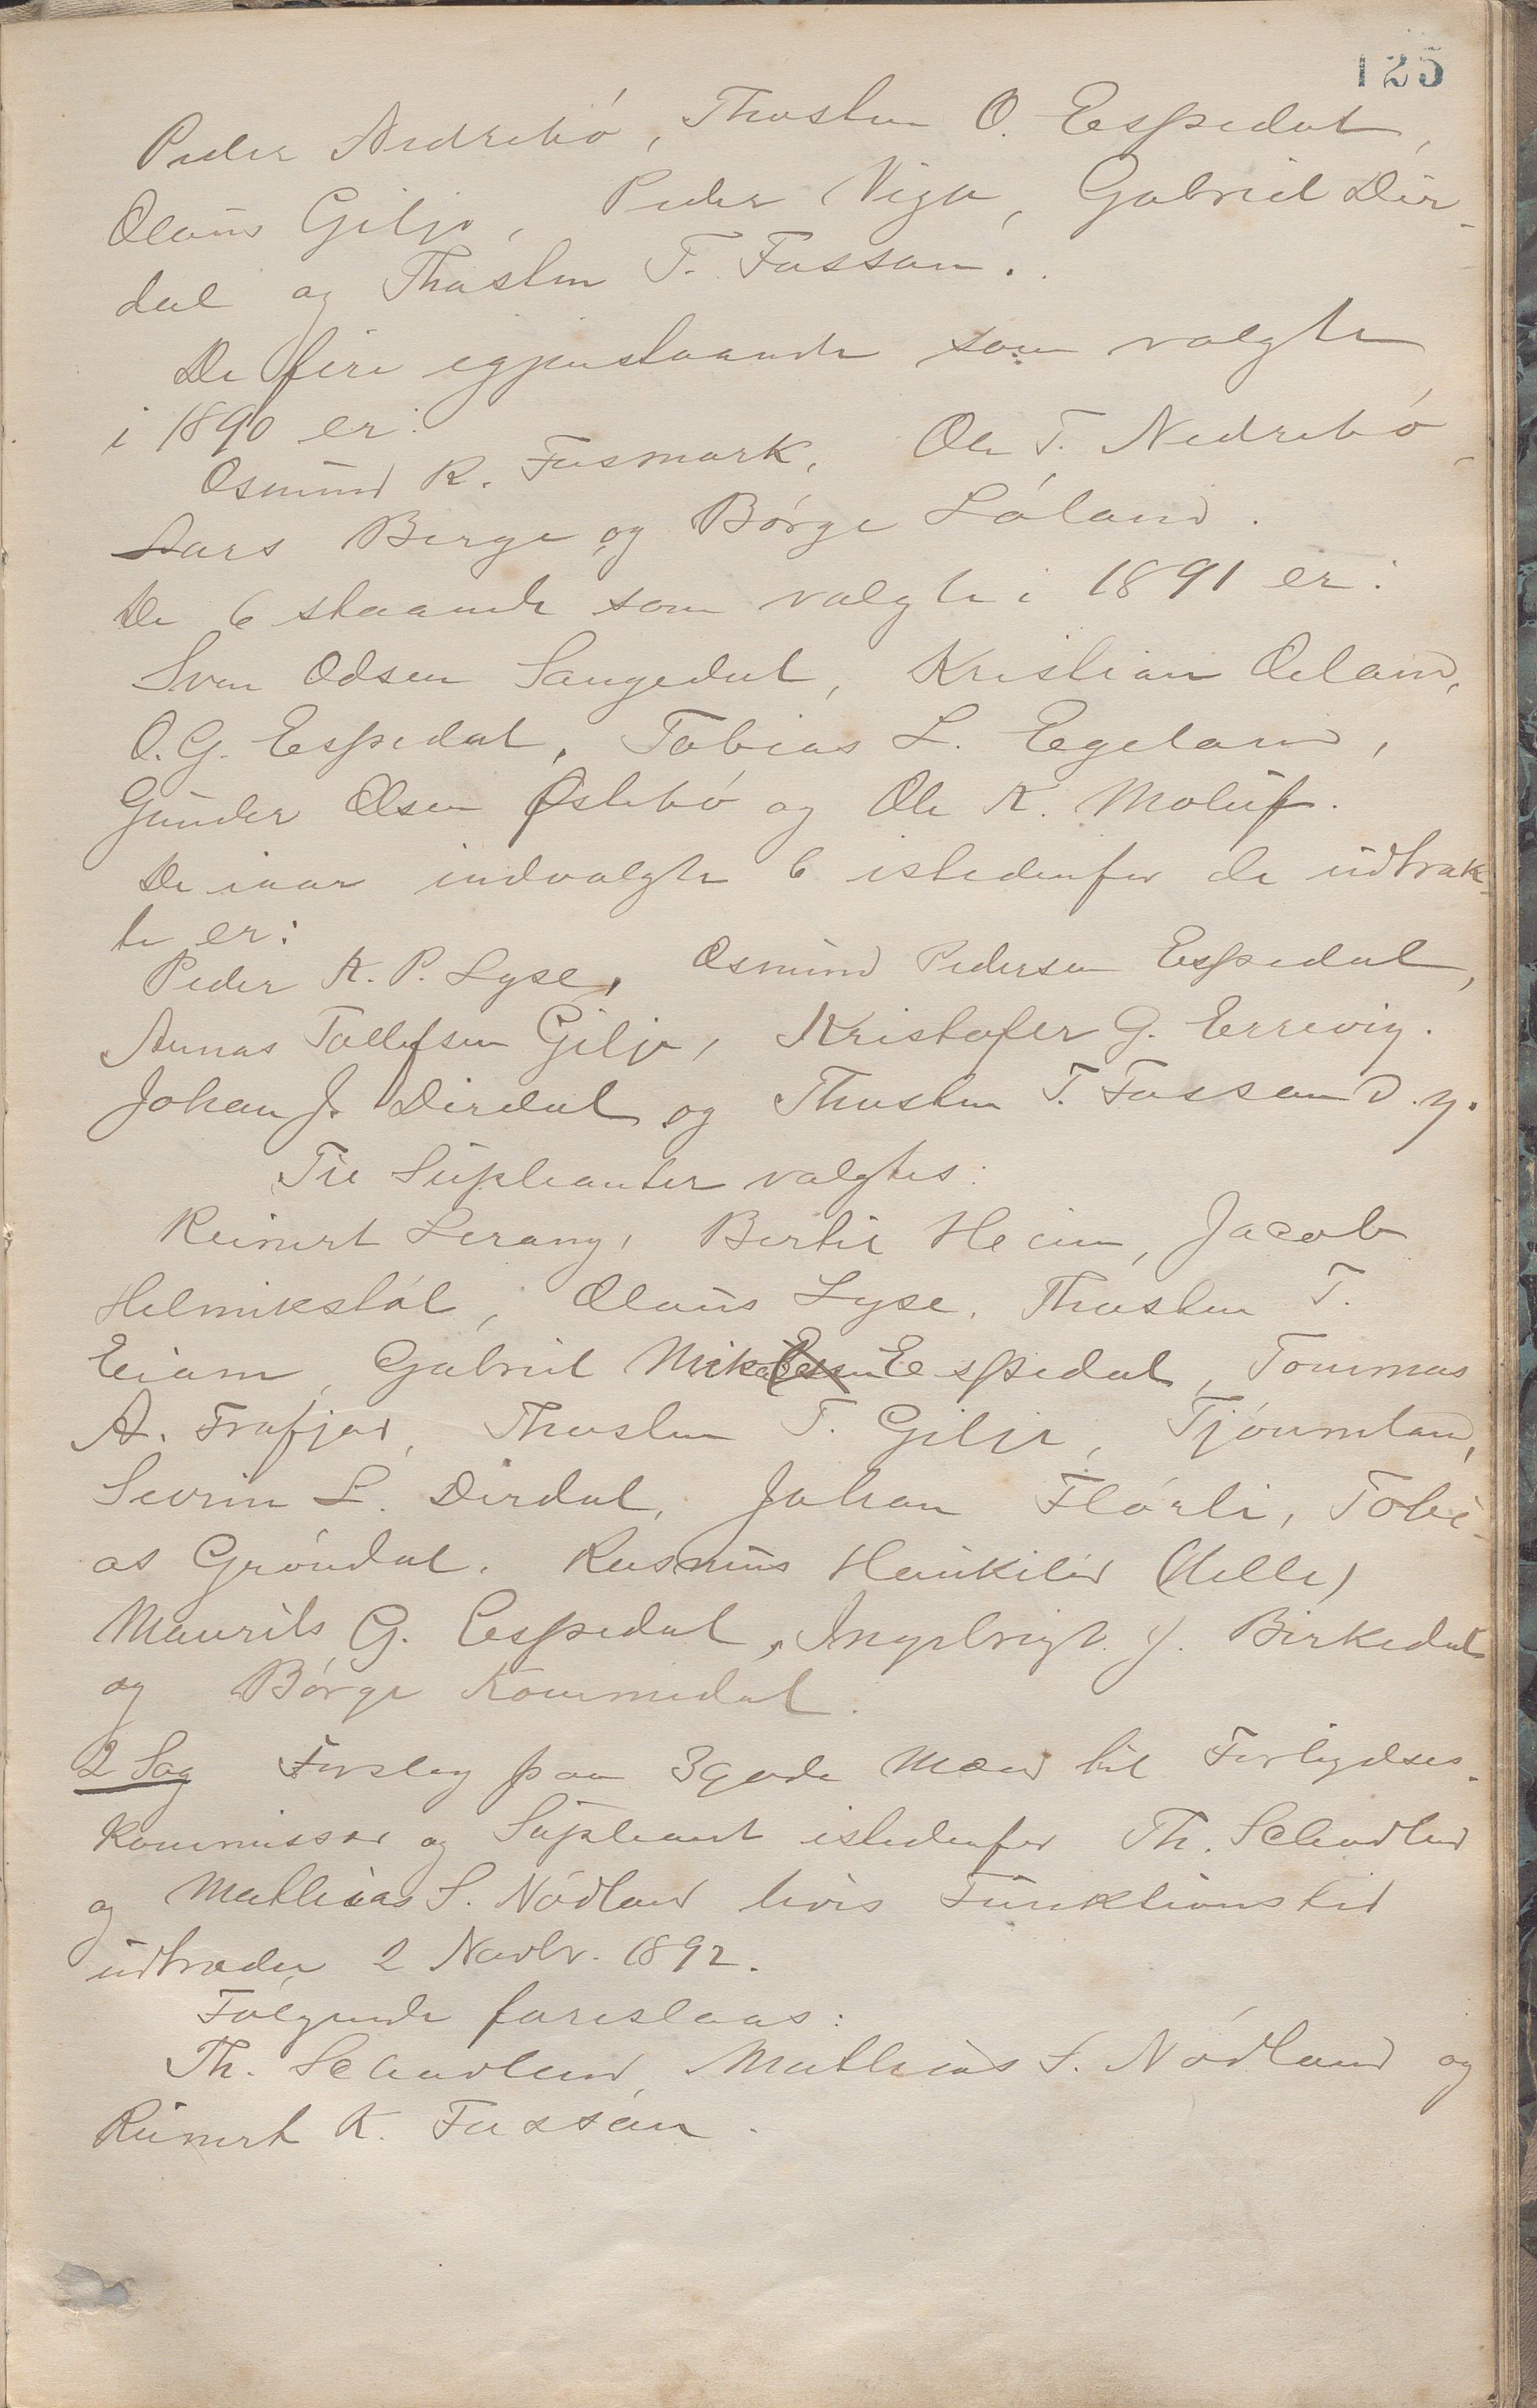 125
Peder Nedrebó, Thosten O. Espedal,
Olaus Gilje, Peder Viga, Gabriel Dir-
dal og Thosten T. Fossan.
De fire igjenstaaende som valgte
i 1890 er:
Osmund R. Fusmark, Ole T. Nedrebó,
Lars Berge og Børge Lóland.
De 6 staaende som valgte i 1891 er:
Sven Odsen Saugedal, Kristian Oeland,
O. G. Espedal, Tobias L. Egeland,
Gunder Olsen Østebó og Ole K. Moluf.
De iaar indvalgte 6 istedenfor de udtrak-
te er:
Peder K. P. Lyse, Osmund Pedersen Espedal,
Aunas Tollefsen Gilje, Kristofer G. Errevig.
Johan J. Dirdal og Thosten T. Fossan d. y.
Til Supleanter valgtes:
Reinert Lerang, Bertil Heim, Jacob
Helmikstól, Olaus Lyse, Thosten T.
Eiane, Gabriel Espedal, Tommas
A. Frafjord, Thosten T. Gilje, Tjóumtan,
Sevrin L. Dirdal, Johan Flórli, Tobi-
as Gróndal. Rasmus Haukilid (Helle)
Maurits G. Espedal, Ingebrigt J. Birkedal
og Børge Kommedal.
2 Sag Forslag paa 3 gode Mænd til Forligelses-
kommissær og Supleant istedenfor Th. Selvedland
og Mathias S. Nódland hvis Funktionstid
udtræder 2 Novbr. 1892.
Fólgende foreslaas:
Th. Selvedland, Mathias S. Nódland og
Reinert K. Fossan.